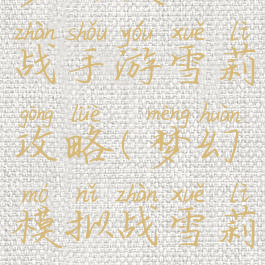 zhàn shǒu yóu xuě lì
战手游雪莉
gōng lüè mèng huàn
攻略(梦幻
mó nǐ zhàn xuě lì
模拟战雪莉